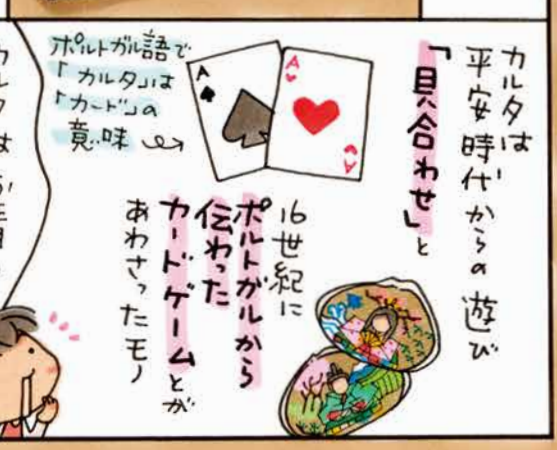 カルタは
平安時代からの遊び
「貝合わせ」と
16世紀に
ポルトガルから
伝わった
カードゲームとが
あわさったモノ
ポルトガル語で
「カルタ」は
「カード」の
意味
A
A
A